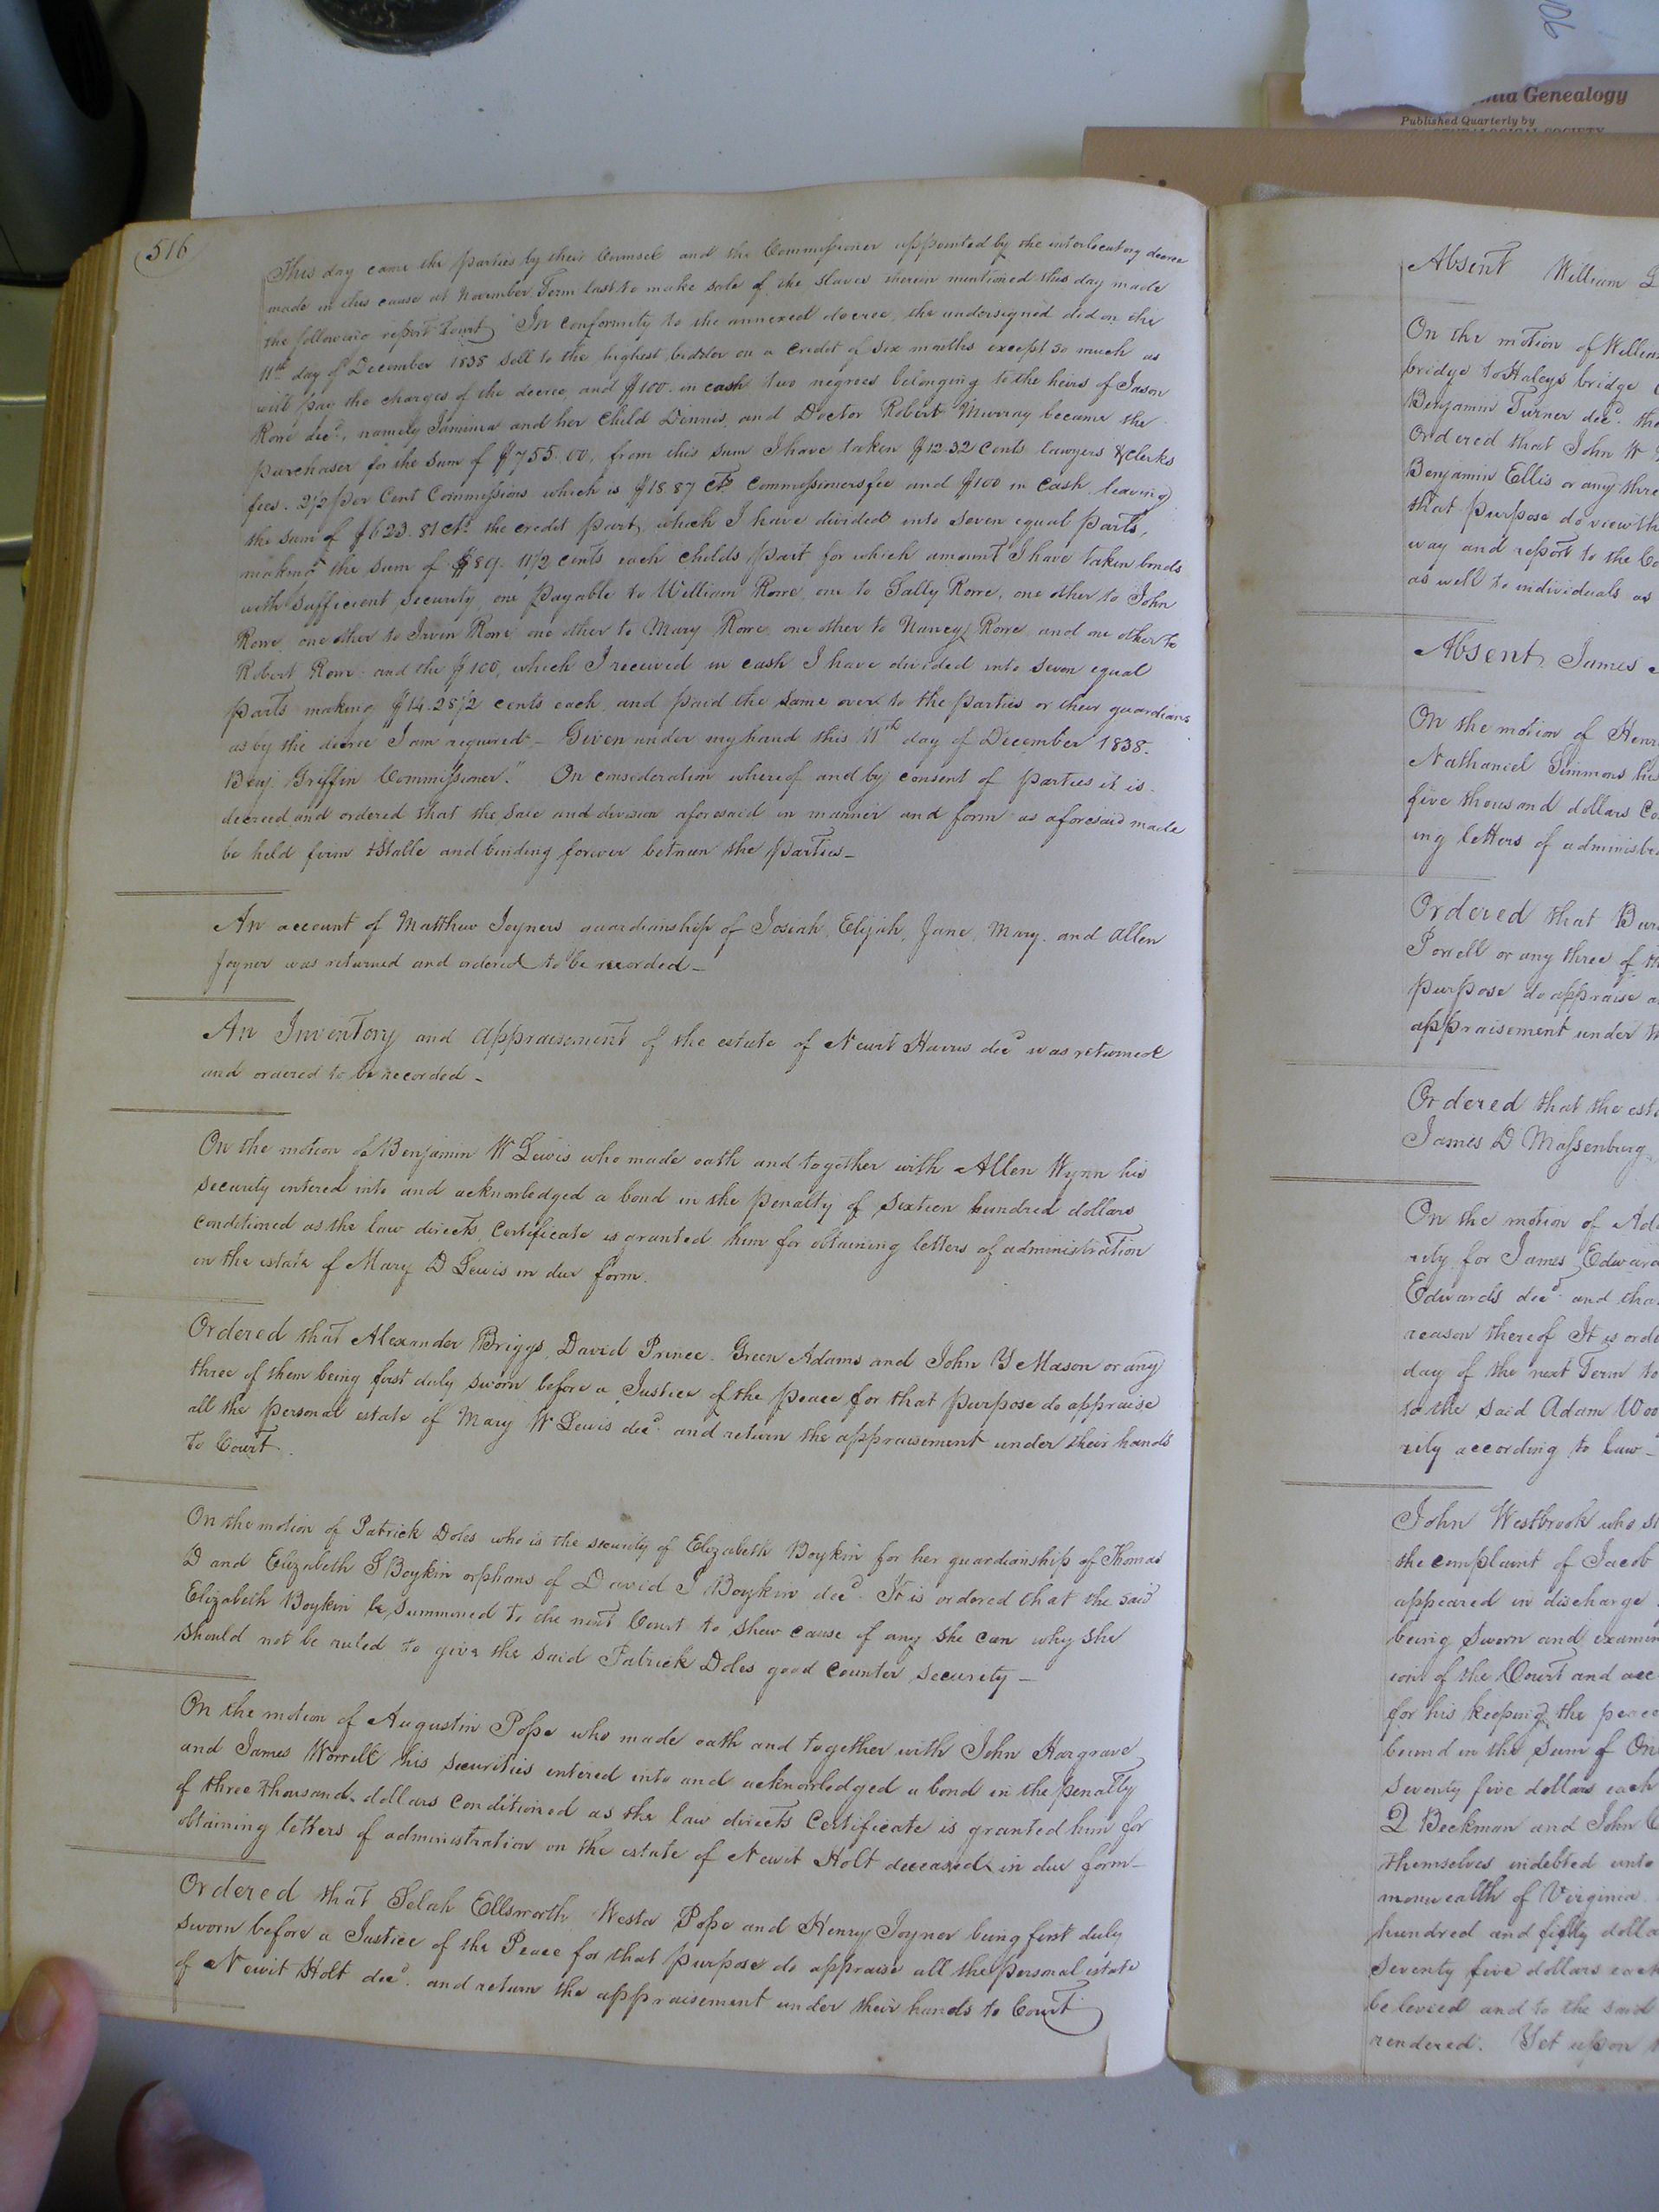 06
nia Genealogy
Published Quarterly by
516
This day came the parties by their Counsel and the Commissioner appointed by the interlocutory decree
made in this cause at November Term last to make sale of the slaves therein mentioned this day made
the following report towit, "In conformity to the annexed decree, the undersigned did on the
11th day of December 1838 sell to the highest bidder on a credit of six months except so much as
will pay the charges of the decree and $100. in cash two negroes belonging to the heirs of Jason
Rowe decd. namely Jamima and her child Dennis, and Doctor Robert Murray became the
purchaser for the sum of $755.00, from this sum I have taken $12.32 cents lawyers & clerks
fees. 2½ per Cent Commissions which is $18.87 cts Commissioners fee and $100 in cash leaving
the sum of $623.81 cts the credit part, which I have divided into seven equal parts,
making the sum of $89. 11½ cents each childs part for which amount I have taken bonds
with sufficient security, one payable to William Rowe, one to Sally Rowe, one other to John
Rowe, one other to Irvin Rowe one other to Mary Rowe, one other to Nancy Rowe and one other to
Robert Rowe. and the $100, which I received in cash I have divided into seven equal
parts making $14.28½ cents each, and paid the same over to the parties or their guardians
as by the decree I am required - Given under my hand this 11th day of December 1838.
Benj. Griffin Commissioner." On consideration whereof and by consent of parties it is
decreed and ordered that the sale and division aforesaid in manner and form as aforesaid made
be held firm & stable and binding forever between the parties-
An account of Matthew Joyners guardianship of Josiah, Elijah, Jane, Mary, and Allen
Joyner was returned and ordered to be recorded-
An Inventory and appraisement of the estate of Newit Harris decd was returned
and ordered to be recorded-
On the motion of Benjamin W Lewis who made oath and together with Allen Wynn his
security entered into and acknowledged a bond in the penalty of sixteen hundred dollars
conditioned as the law directs, Certificate is granted him for obtaining letters of administration
on the estate of Mary D Lewis in due form.
Ordered that Alexander Briggs, David Prince, Green Adams and John Y Mason or any
three of them being first duly sworn before a Justice of the peace for that purpose do appraise
all the personal estate of Mary W Lewis decd. and return the appraisement under their hands
to Court.
On the motion of Patrick Doles who is the security of Elizabeth Boykin for her guardianship of Thomas
D and Elizabeth S Boykin orphans of David J Boykin decd. It is ordered that the said
Elizabeth Boykin be summoned to the next Court to shew cause if any she can why she
should not be ruled to give the said Patrick Doles good counter security-
On the motion of Augustin Pope who made oath and together with John Hargrave
and James Worrell his securities entered into and acknowledged a bond in the penalty
of three thousand dollars conditioned as the law directs Certificate is granted him for
obtaining letters of administration on the estate of Newit Holt deceased in due form-
Ordered that Selah Ellsworth, Westa Pope and Henry Joyner being first duly
sworn before a Justice of the Peace for that purpose do appraise all the personal estate
of Newit Holt decd. and return the appraisement under their hands to Court
Absent William
On the motion of William
bridge to Haleys bridge
Benjamin Turner decd. the
Ordered that John W
Benjamin Ellis or any three
that purpose do view th
way and report to the Co
as well to individuals as
Absent James
On the motion of Henr
Nathaniel Simmons his
five thousand dollars co
ing letters of administra
Ordered that Bur
Powell or any three of th
purpose do appraise a
appraisement under th
Ordered that the est
James D Massenburg
On the motion of Ada
rity for James Edward
Edwards decd. and tha
reason thereof It is orde
day of the next Term to
to the said Adam Woo
rity according to law-
John Westbrook who st
the complaint of Jacob
appeared in discharge
being sworn and examin
ion of the Court and acc
for his keeping the peace
bound in the sum of One
seventy five dollars each
Q Beckman and John C
themselves indebted unto
monwealth of Virginia
hundred and fifty dolla
seventy five dollars each
be levied and to the said
rendered. Yet upon